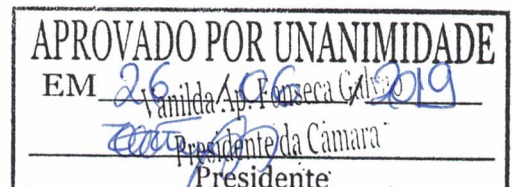 APROVADO POR UNANIMIDADE
EM 26/06/2019
Vanilda Ap. Fonseca Galvão
Presidente da Câmara
Presidente